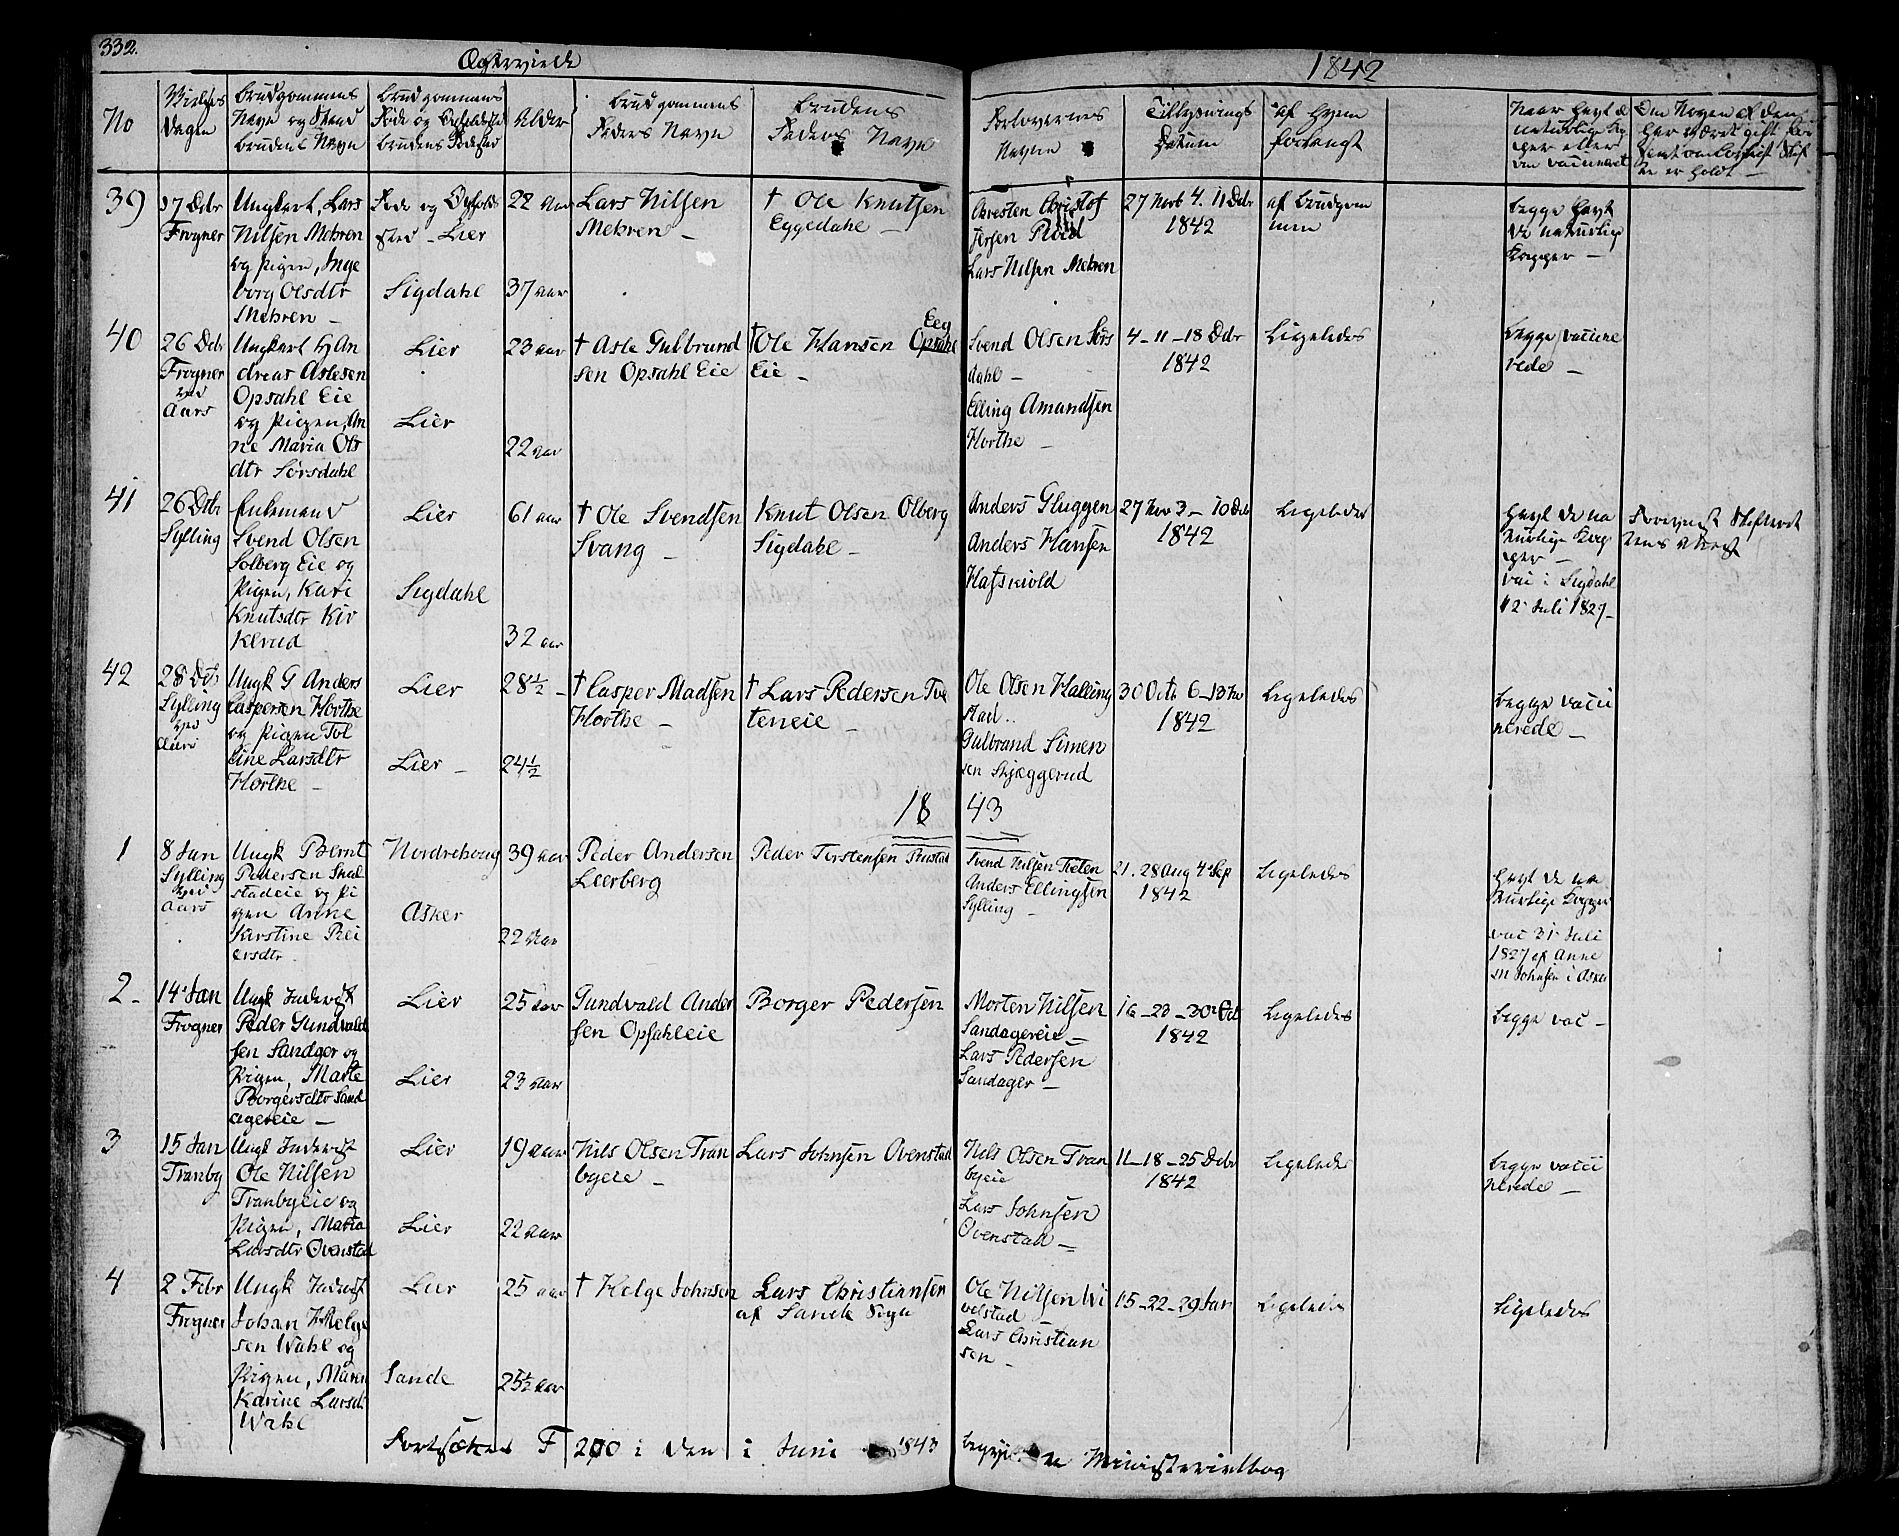 332.
Ægteviede
1842
No
Vielses
Dagen
Brudgommens
Navn og Stand
Brudens Navn
Brudgommens
Føde og Opholdsted
Brudens Fødested
Alder
Brudgommens
Faders Navn
Brudens
Faders Navn
Forlovernes
Navne
Tillysnings
Datum
af Hvem
forlangt
Naar havt de
naturlige Kop
per eller
ere vaccineret
Om Nogen af dem
har været gift før
samt om lovligt Skif
te er holdt
39
17 Dcbr
Frogner
Ungkarl, Lars
Nilsen Mehren
og Pigen, Inge
borg Olsdtr
Mehren
Føde og Opholds
sted - Lier
Sigdahl
22 Aar
37 aar
Lars Nilsen
Mehren
† Ole Knutsen
Eggedahl
Chresten Christof
fersen
Lars Nilsen Mehren
27 Novb 4. 11 Dcbr
1842
af Brudgom
men
Begge havt
de naturlige
Kopper
40
26 Dcbr
Frogner
ved
Aars
Ungkarl G An
dreas Aslesen
Opsahl Eie
og Pigen, An
ne Maria Ols
dtr Sørsdahl
Lier
Lier
23 aar
22 aar
† Asle Gulbrand
sen Opsahl Eie
† Ole Hansen Opsahl
Eeg
Eie
Svend Olsen Sørs
dahl
Elling Amundsen
Horthe
4 - 11 - 18 Dcbr
1842
Ligeledes
Begge vaccine
rede
41
26 Dcbr
Sylling
Enkemand
Svend Olsen
Solberg Eie og
Pigen, Kari
Knutsdtr Kiv
Klerud
Lier
Sigdahl
61 aar
32 aar
† Ole Svendsen
Svang
Knut Olsen Olberg
Sigdahl
Anders Gluggen
Anders Hansen
Hafskiold
27 Nov 3 - 10 Dcb
1842
Ligeledes
Havt de na
turlige Kop
per
vac i Sigdahl
12 Juli 1827
Forevist Skifteret
tens Attest
42
28 Dcb
Sylling
ved
Aars
Ungk G Anders
Caspersen Horthe
og Pigen Tol
line Larsdtr
Horthe
Lier
Lier
28½
24½
† Casper Madsen
Horthe
† Lars Pedersen Tve
teneie
Ole Olsen Halling
stad
Gulbrand Simen
sen Skjæggerud
30 Octb 6 - 13 Nov
1842
Ligeledes
Begge vacci
nerede
18 43
1
8 Jan
Sylling
ved
Aars
Ungk Bernt
Pedersen Skal
stadeie og Pi
gen Anne
Kirstine Pe
ersdtr
Nordrehoug
Asker
39 aar
22 Aar
Peder Andersen
Leerberg
Peder Terstensen Rustad
Svend Nilsen Tveten
Anders Ellingsen
Sylling
21. 28 Aug 4 Sep
1842
Ligeledes
Havt de na
turlige Kopper
vac 31 Juli
1827 af Anne
M Johnsen i Asker
2
14 Jan
Frogner
Ungk Inderst
Peder Gundvald
sen Sandger og
Pigen, Marte
Borgersdtr Sand
agereie
Lier
Lier
25 aar
23 aar
Gundvald Ander
sen Opsahleie
Borger Pedersen
Morten Nilsen
Sandagereie
Lars Pedersen
Sandager
16 - 23 - 30 Oct
1842
Ligeledes
Begge vac
3
15 Jan
Tranby
Ungk Inderst
Ole Nilsen
Tranbyeie og
Pigen, Maria
Larsdtr Ovenstad
Lier
Lier
19 aar
22 aar
Nils Olsen Tran
byeie
Lars Johnsen Ovenstad
Nils Olsen Tran
byeie
Lars Johnsen
Ovenstad
11 - 18 - 25 Dcbr
1842
Ligeledes
Begge vacci
nerede
4
2 Febr
Frogner
Ungk Inderst
Johan Helge
sen Wahl og
Pigen, Maren
Karine Larsdtr
Wahl
Lier
Sande
25 aar
25½ aar
† Helge Johnsen
Lars Christiansen
af Sande Sogn
Ole Nilsen Wi
velstad
Lars Christian
sen
15 - 22 - 29 Jan
Ligeledes
Ligeledes
Fortsættes F 200 i den i Juni 1843 Ministerialbog